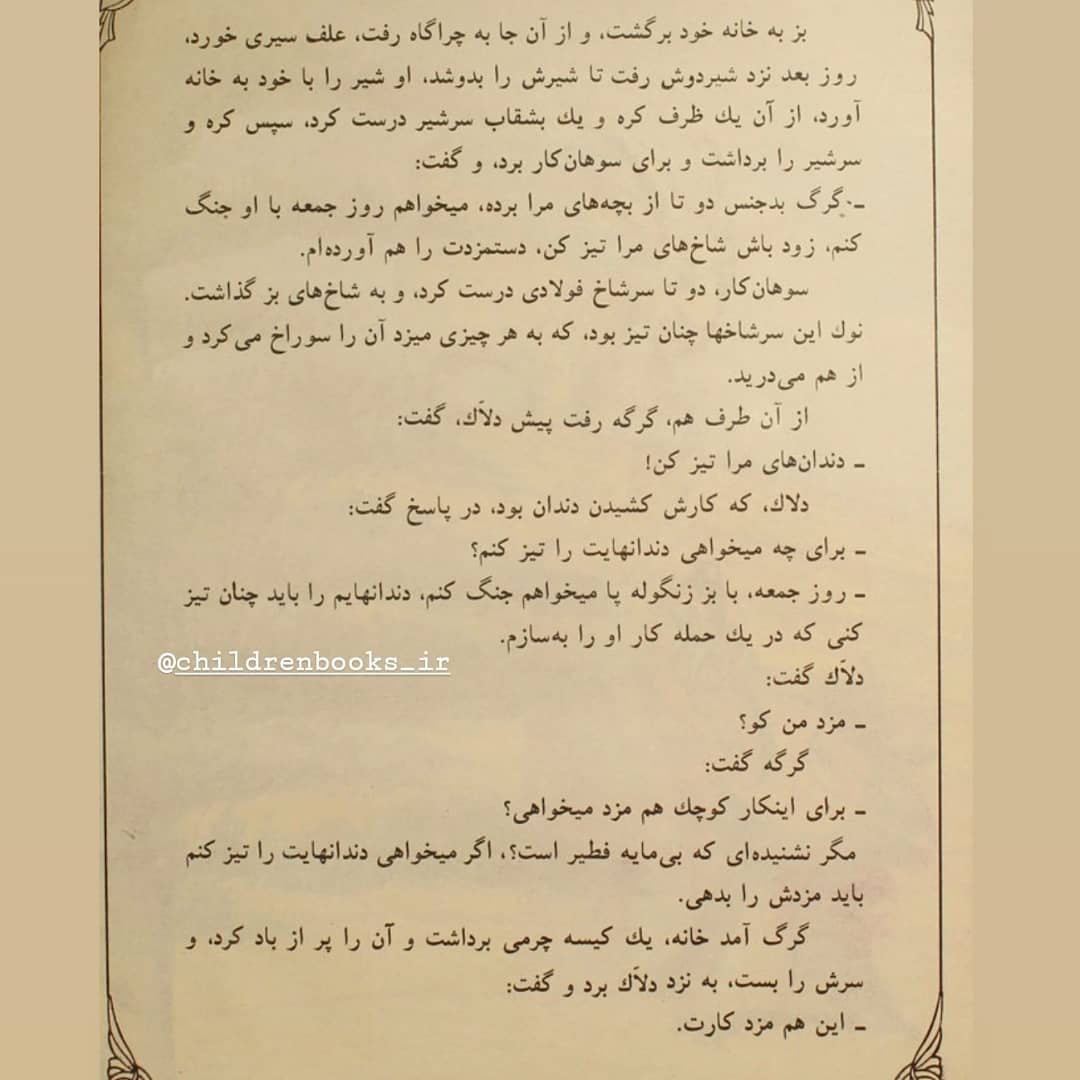 بز به خانه خود برگشت، و از آن جا به چراگاه رفت، علف سیری خورد،
روز بعد نزد شیردوش رفت تا شیرش را بدوشد، او شیر را با خود به خانه
آورد، از آن یك ظرف کره و یك بشقاب سرشیر درست کرد، سپس کره و
سرشیر را برداشت و برای سوهان‌کار برد، و گفت:
ـ گرگ بدجنس دو تا از بچه‌های مرا برده، میخواهم روز جمعه با او جنگ
کنم، زود باش شاخ‌های مرا تیز کن، دستمزدت را هم آورده‌ام.
سوهان‌کار، دو تا سرشاخ فولادی درست کرد، و به شاخ‌های بز گذاشت.
نوك این سرشاخها چنان تیز بود، که به هر چیزی میزد آن را سوراخ می‌کرد و
از هم می‌درید.
از آن طرف هم، گرگه رفت پیش دلاّك، گفت:
ـ دندان‌های مرا تیز کن!
دلاك، که کارش کشیدن دندان بود، در پاسخ گفت:
ـ برای چه میخواهی دندانهایت را تیز کنم؟
ـ روز جمعه، با بز زنگوله پا میخواهم جنگ کنم، دندانهایم را باید چنان تیز
کنی که در یك حمله کار او را به‌سازم.
@childrenbooks_ir
دلاّك گفت:
ـ مزد من کو؟
گرگه گفت:
ـ برای اینکار کوچك هم مزد میخواهی؟
مگر نشنیده‌ای که بی‌مایه فطیر است؟، اگر میخواهی دندانهایت را تیز کنم
باید مزدش را بدهی.
گرگ آمد خانه، یك کیسه چرمی برداشت و آن را پر از باد کرد، و
سرش را بست، به نزد دلاّك برد و گفت:
ـ این هم مزد کارت.